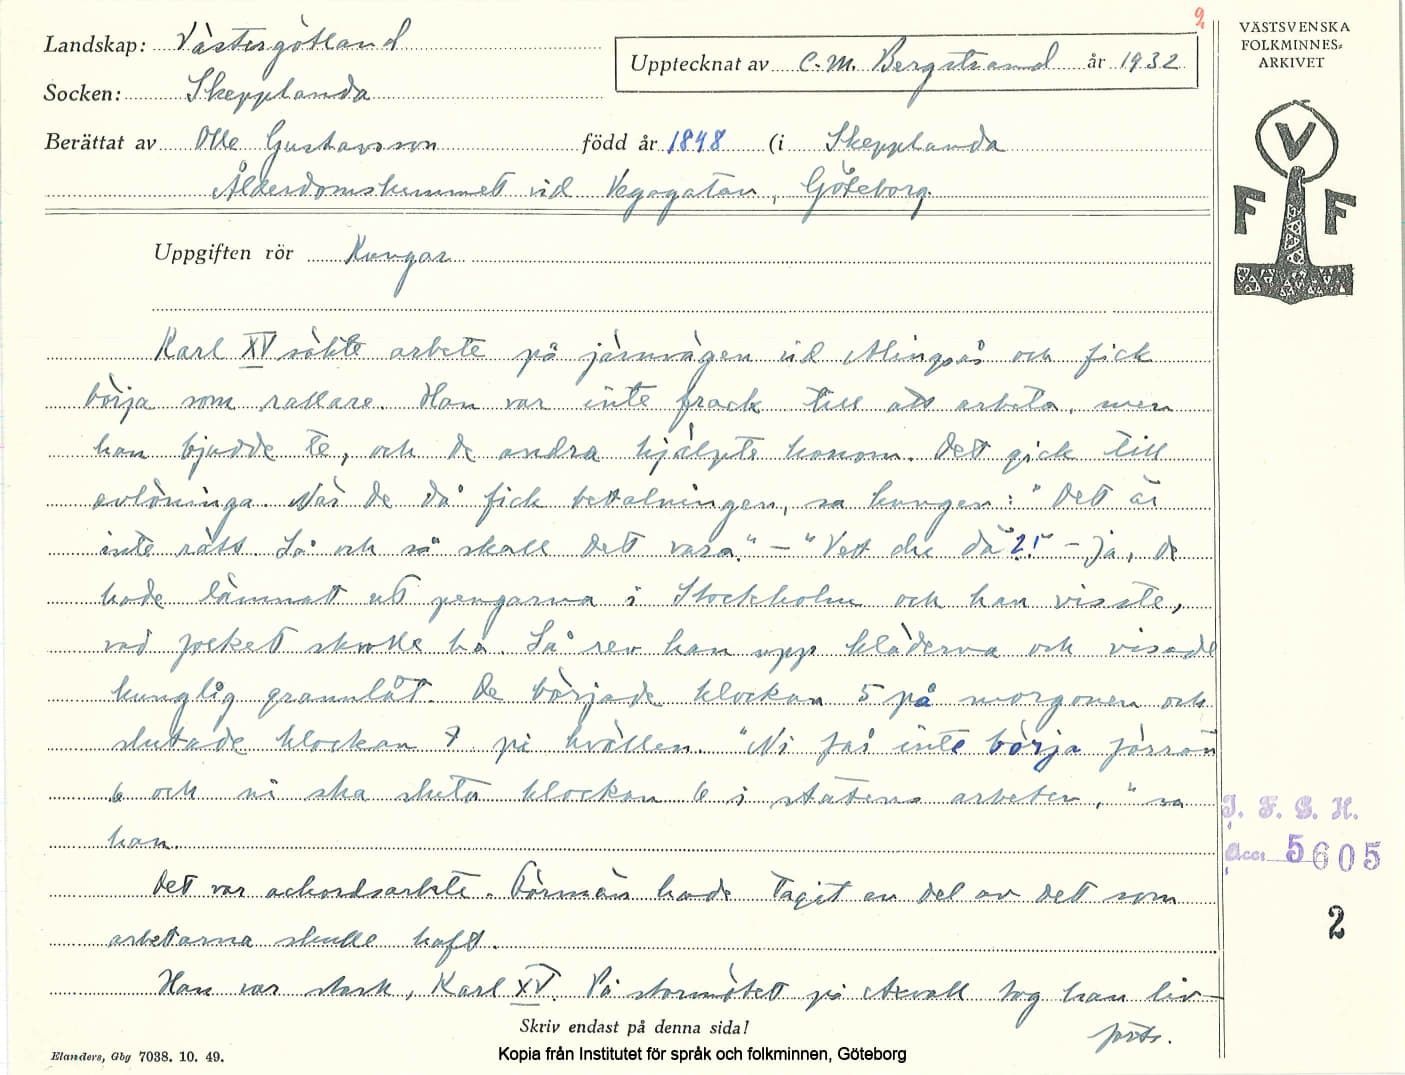 9
Landskap: Västergötland
Upptecknat av C. M. Bergstrand år 1932
VÄSTSVENSKA
FOLKMINNES=
ARKIVET
Socken: Skepplanda
Berättat av Olle Gustavsson född år 1848 (i Skepplanda
Ålderdomshemmet vid Vegagatan, Göteborg.
V
F F
Uppgiften rör Kungar
Karl XV sökte arbete på järnvägen vid Alingsås och fick
börja som rallare. Han var inte frack till att arbeta, men
han bjudde te, och de andra hjälpte honom. Det gick till
avlöninga. När de då fick bettalningen, sa kungen: "Det är
inte rätt. Så och så skall det vara." – "Vet du då?!" – Ja, de
hade lämnat ut pengarna i Stockholm och han visste,
vad folket skulle ha. Så rev han upp kläderna och visade
kunglig grannlåt. De började klockan 5 på morgonen och
slutade klockan 7 på kvällen. "Ni får inte börja förrän
6 och ni ska sluta klockan 6 i statens arbeten," sa
han.
I. F. G. H.
Acc. 5605
2
Det var ackordsarbete. Förmän hade tagit en del av det som
arbetarna skulle haft.
Han var stark, Karl XV. På stormötet på Axvall tog han liv-
forts.
Skriv endast på denna sida!
Elanders, Gbg 7038. 10. 49.
Kopia från Institutet för språk och folkminnen, Göteborg